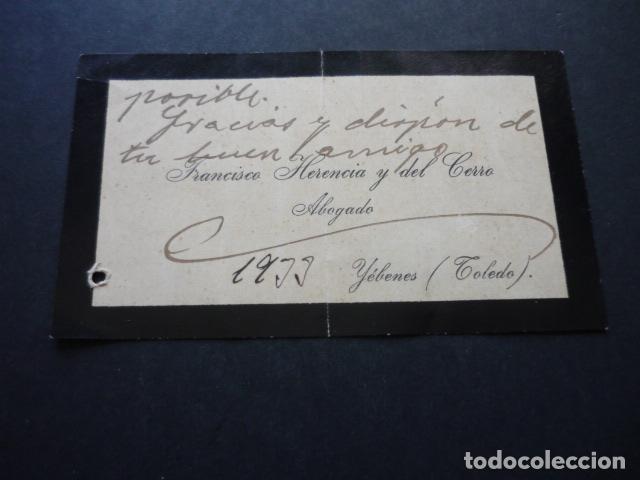 posible.
Gracias y dispón de
tu buen amigo
Francisco Herencia y del Cerro
Abogado
1933
Yébenes (Toledo).
todocoleccion